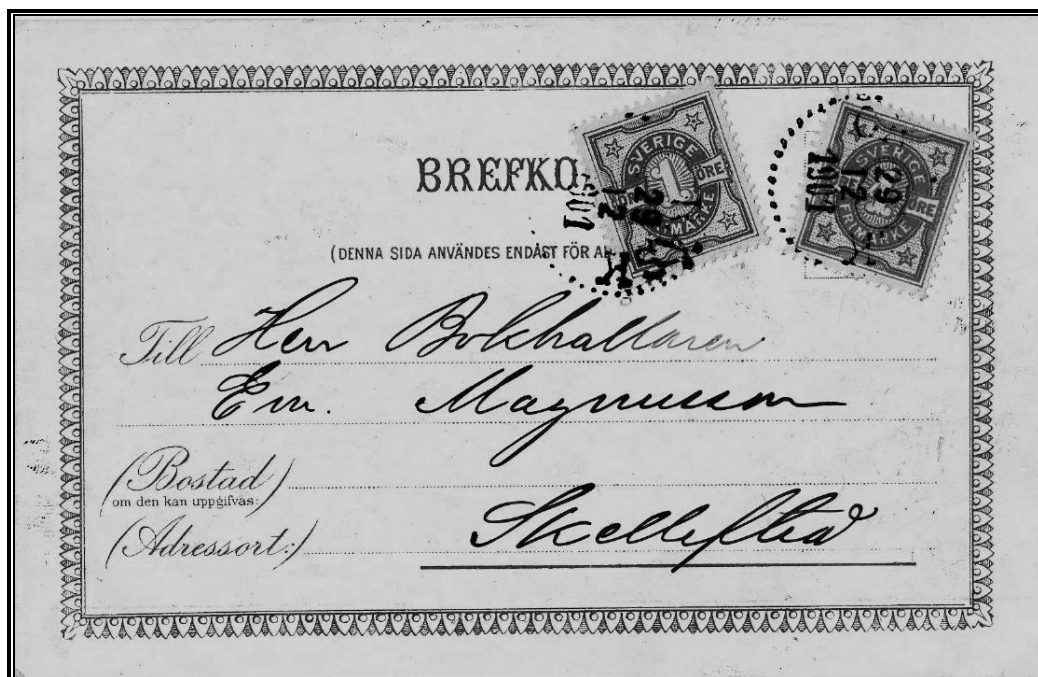 BREFKO
(DENNA SIDA ANVÄNDES ENDAST FÖR AD
SVERIGE
1
ÖRE
29
12
1901
SVERIGE
ÖRE
FRIMÄRKE
29
12
1901
Till Herr Bokhallaren
Em. Magnusson
(Bostad)
om den kan uppgifvas:
(Adressort:) Skellefteå